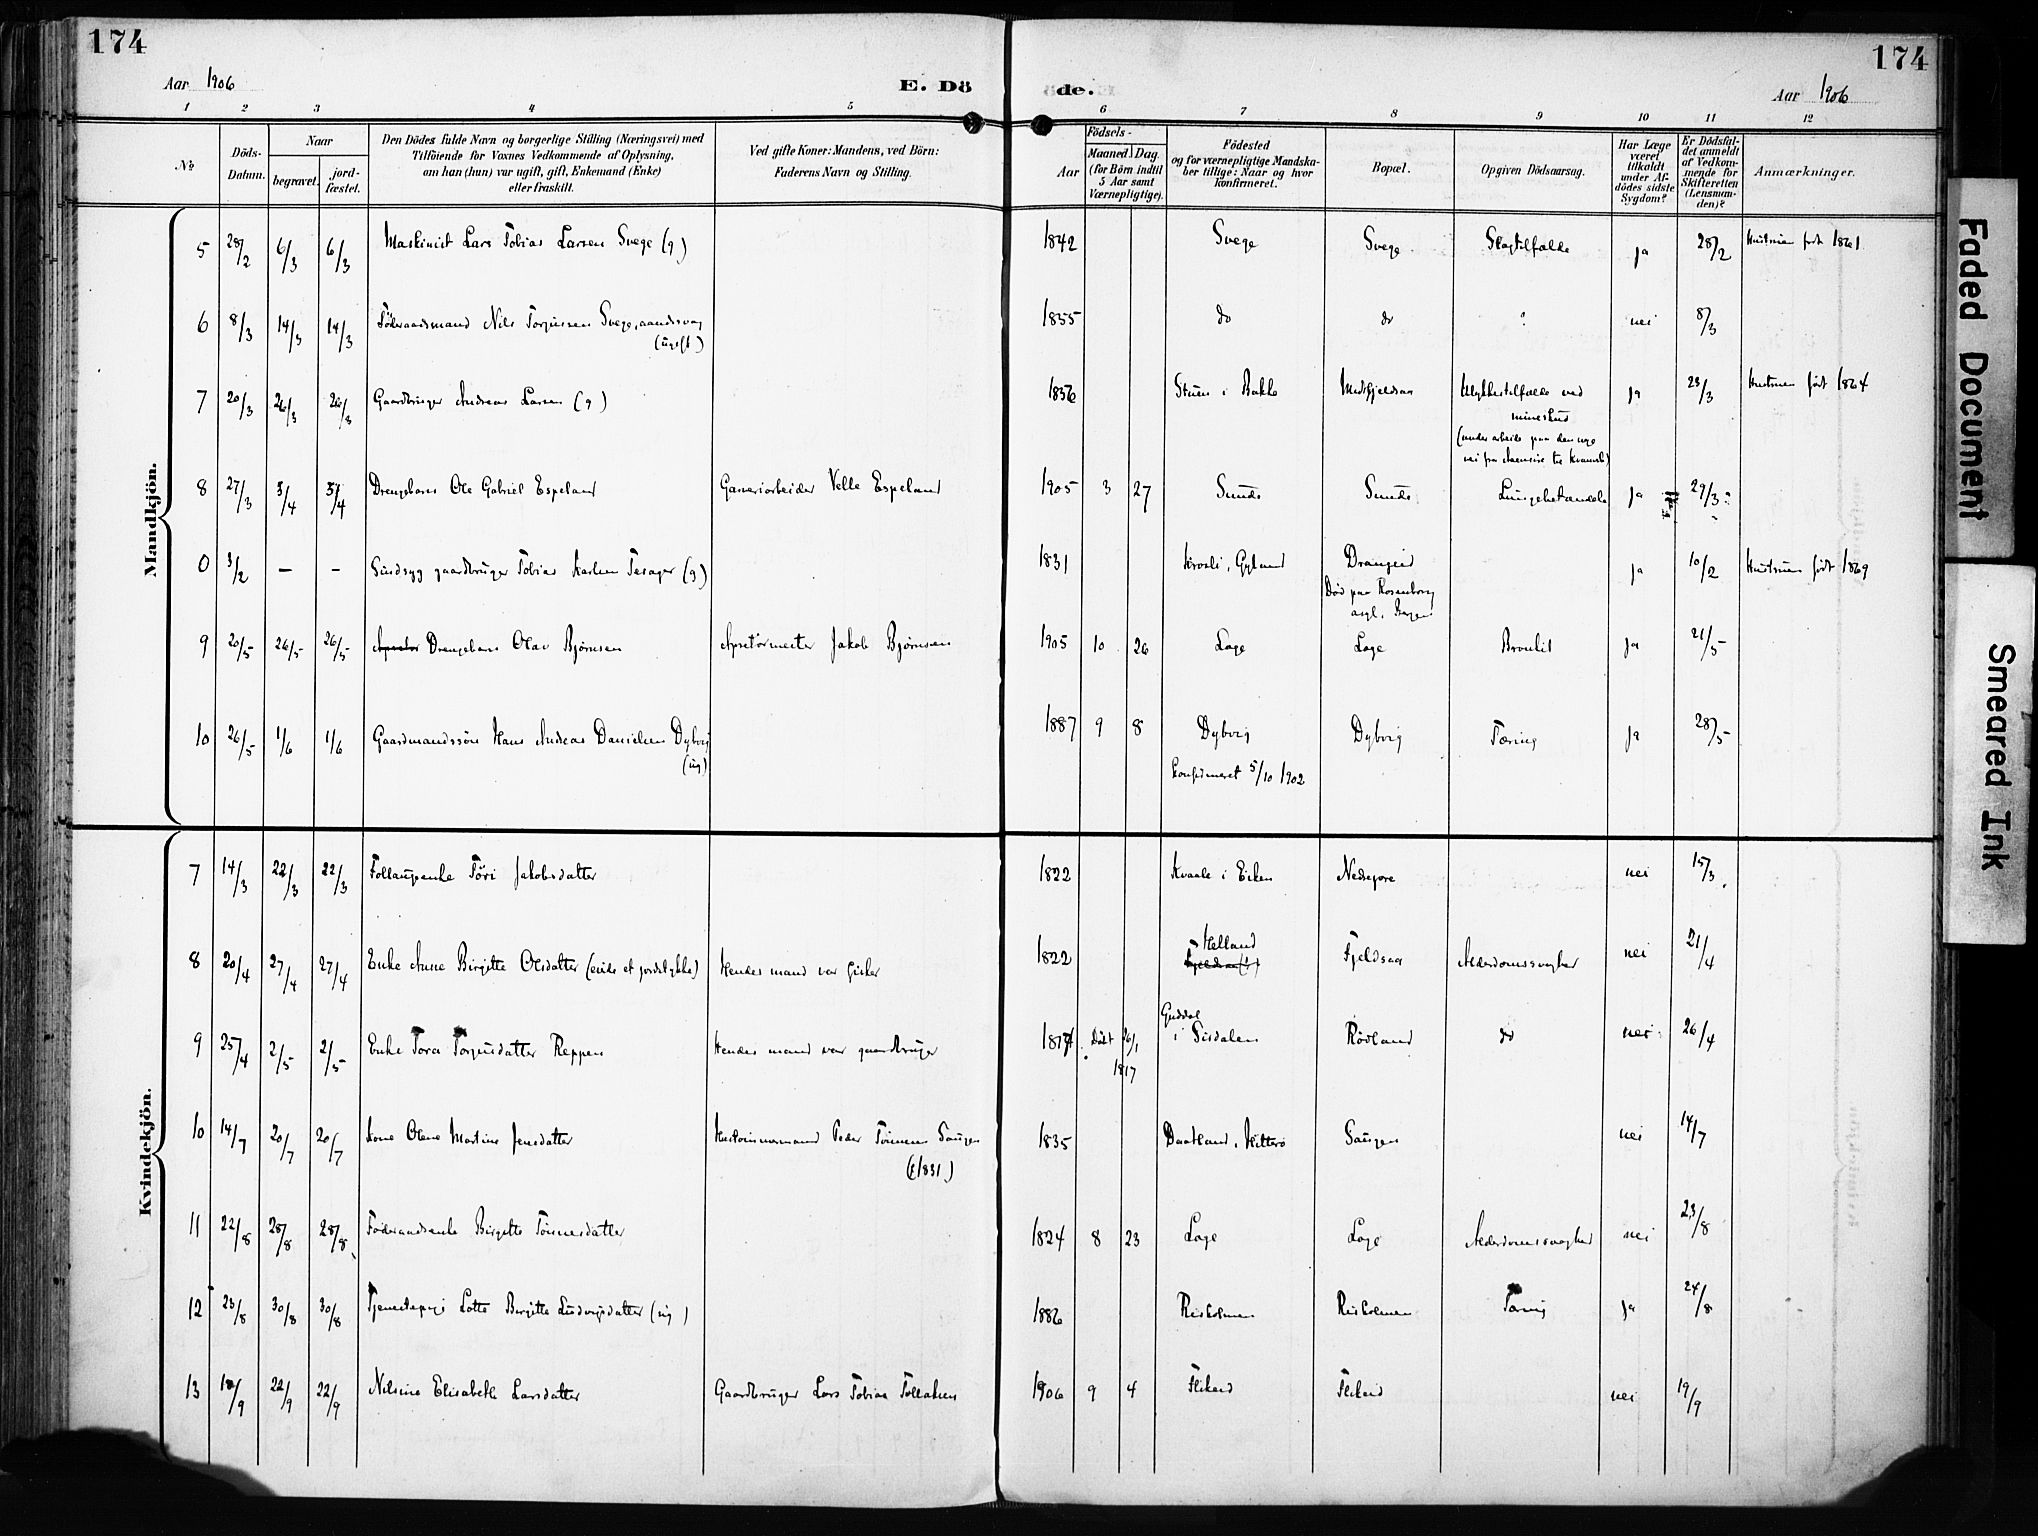 174
Aar 1906
E. Dö
de.
Aar 1906
174
1 2 3 4 5 6 7 8 9 10 11 12
No
Döds-Datum.
Naar
begravet.
jord-fæstet.
Den Dödes fulde Navn og borgerlige Stilling (Næringsvei) med
Tilföiende for Voxnes Vedkommende af Oplysning,
om han (hun) var ugift, gift, Enkemand (Enke)
eller fraskilt.
Ved gifte Koner: Mandens, ved Börn:
Faderens Navn og Stilling.
Födsels-
Aar
Maaned Dag
(for Börn indtil
5 Aar samt
Værnepligtige).
Födested
og for værnepligtige Mandska-
ber tillige: Naar og hvor
konfirmeret.
Bopæl.
Opgiven Dödsaarsag.
Har Læge
været
tilkaldt
under Af-
dödes sidste
Sygdom?
Er Dödsfal-
det anmeldt
af Vedkom-
mende for
Skifteretten
(Lensman-
den)?
Anmærkninger.
Mandkjön.
5 28/2 6/3 6/3 Maskinist Lars Tobias Larsen Svege (g) 1842 Svege Svege Slagtilfælde ja 28/2 Hustruen født 1861
6 8/3 14/3 14/3 Föderaadsmand Nils Torjussen Svege, aandssvag 1855 do do ? nei 8/3
(ugift)
7 20/3 26/3 26/3 Gaardbruger Andreas Larsen (g) 1856 Stuen i Bakke Midtfjeldsaa Ulykkestilfælde ved ja 23/3 Hustruen født 1864
mineskud
(under arbeide paa den nye
vei fra
8 27/3 3/4 3/4 Drengebarn Ole Gabriel Espeland Garveriarbeider Velle Espeland 1905 3 27 Sunde Sunde Lungebetændelse ja 29/3
0 3/2 – – Sindsyg gaardbruger Tobias Karlsen Tesager (g) 1831 Gyland Drangeid ja 10/2 Hustruen født 1869
Død paa Rosenborg
asyl,
9 20/5 26/5 26/5 Drengebarn Olav Bjørnsen Jakob Bjørnsen 1905 10 26 Loge Loge Bronkit ja 21/5
10 26/5 1/6 1/6 Gaardmandssön Hans Andreas Danielsen Dybvig 1887 9 8 Dybvig Dybvig Tæring ja 28/5
(ug)
konfirmeret 5/10 1902
Kvindekjön.
7 14/3 22/3 22/3 Föri Jakobsdatter 1822 Kvaale i Eiken Nedrepore nei 15/3
8 20/4 27/4 27/4 Enke Anne Birgitte Olsdatter (eiede et jordstykke) Hendes mand var Gisler 1822 Helland Fjeldsaa Alderdomssvaghet nei 21/4
9 25/4 2/5 2/5 Enke Tora Torjusdatter Reppen Hendes mand var gaardbruger 1817 Døbt 26/1 1817 i Sirdalen Rödland do nei 26/4
10 14/7 20/7 20/7 Kone Olene Martine Jensdatter Peder Tönnesen Saugen 1835 Daatland, Hitterö Saugen nei 14/7
(f 1831)
11 22/8 28/8 28/8 Föderaadsenke Birgitte Tönnesdatter 1824 8 23 Loge Loge Alderdomssvaghed nei 23/8
12 23/8 30/8 30/8 Tjenestepige Lotte Birgitte Ludvigsdatter (ug) 1886 Reisholmen Reisholmen Tæring ja 24/8
13 18/9 22/9 22/9 Nilsine Elisabeth Larsdatter Gaardbruger Lars Tobias Tollaksen 1906 9 4 Flikeid Flikeid nei 19/9
Faded Document
Smeared Ink